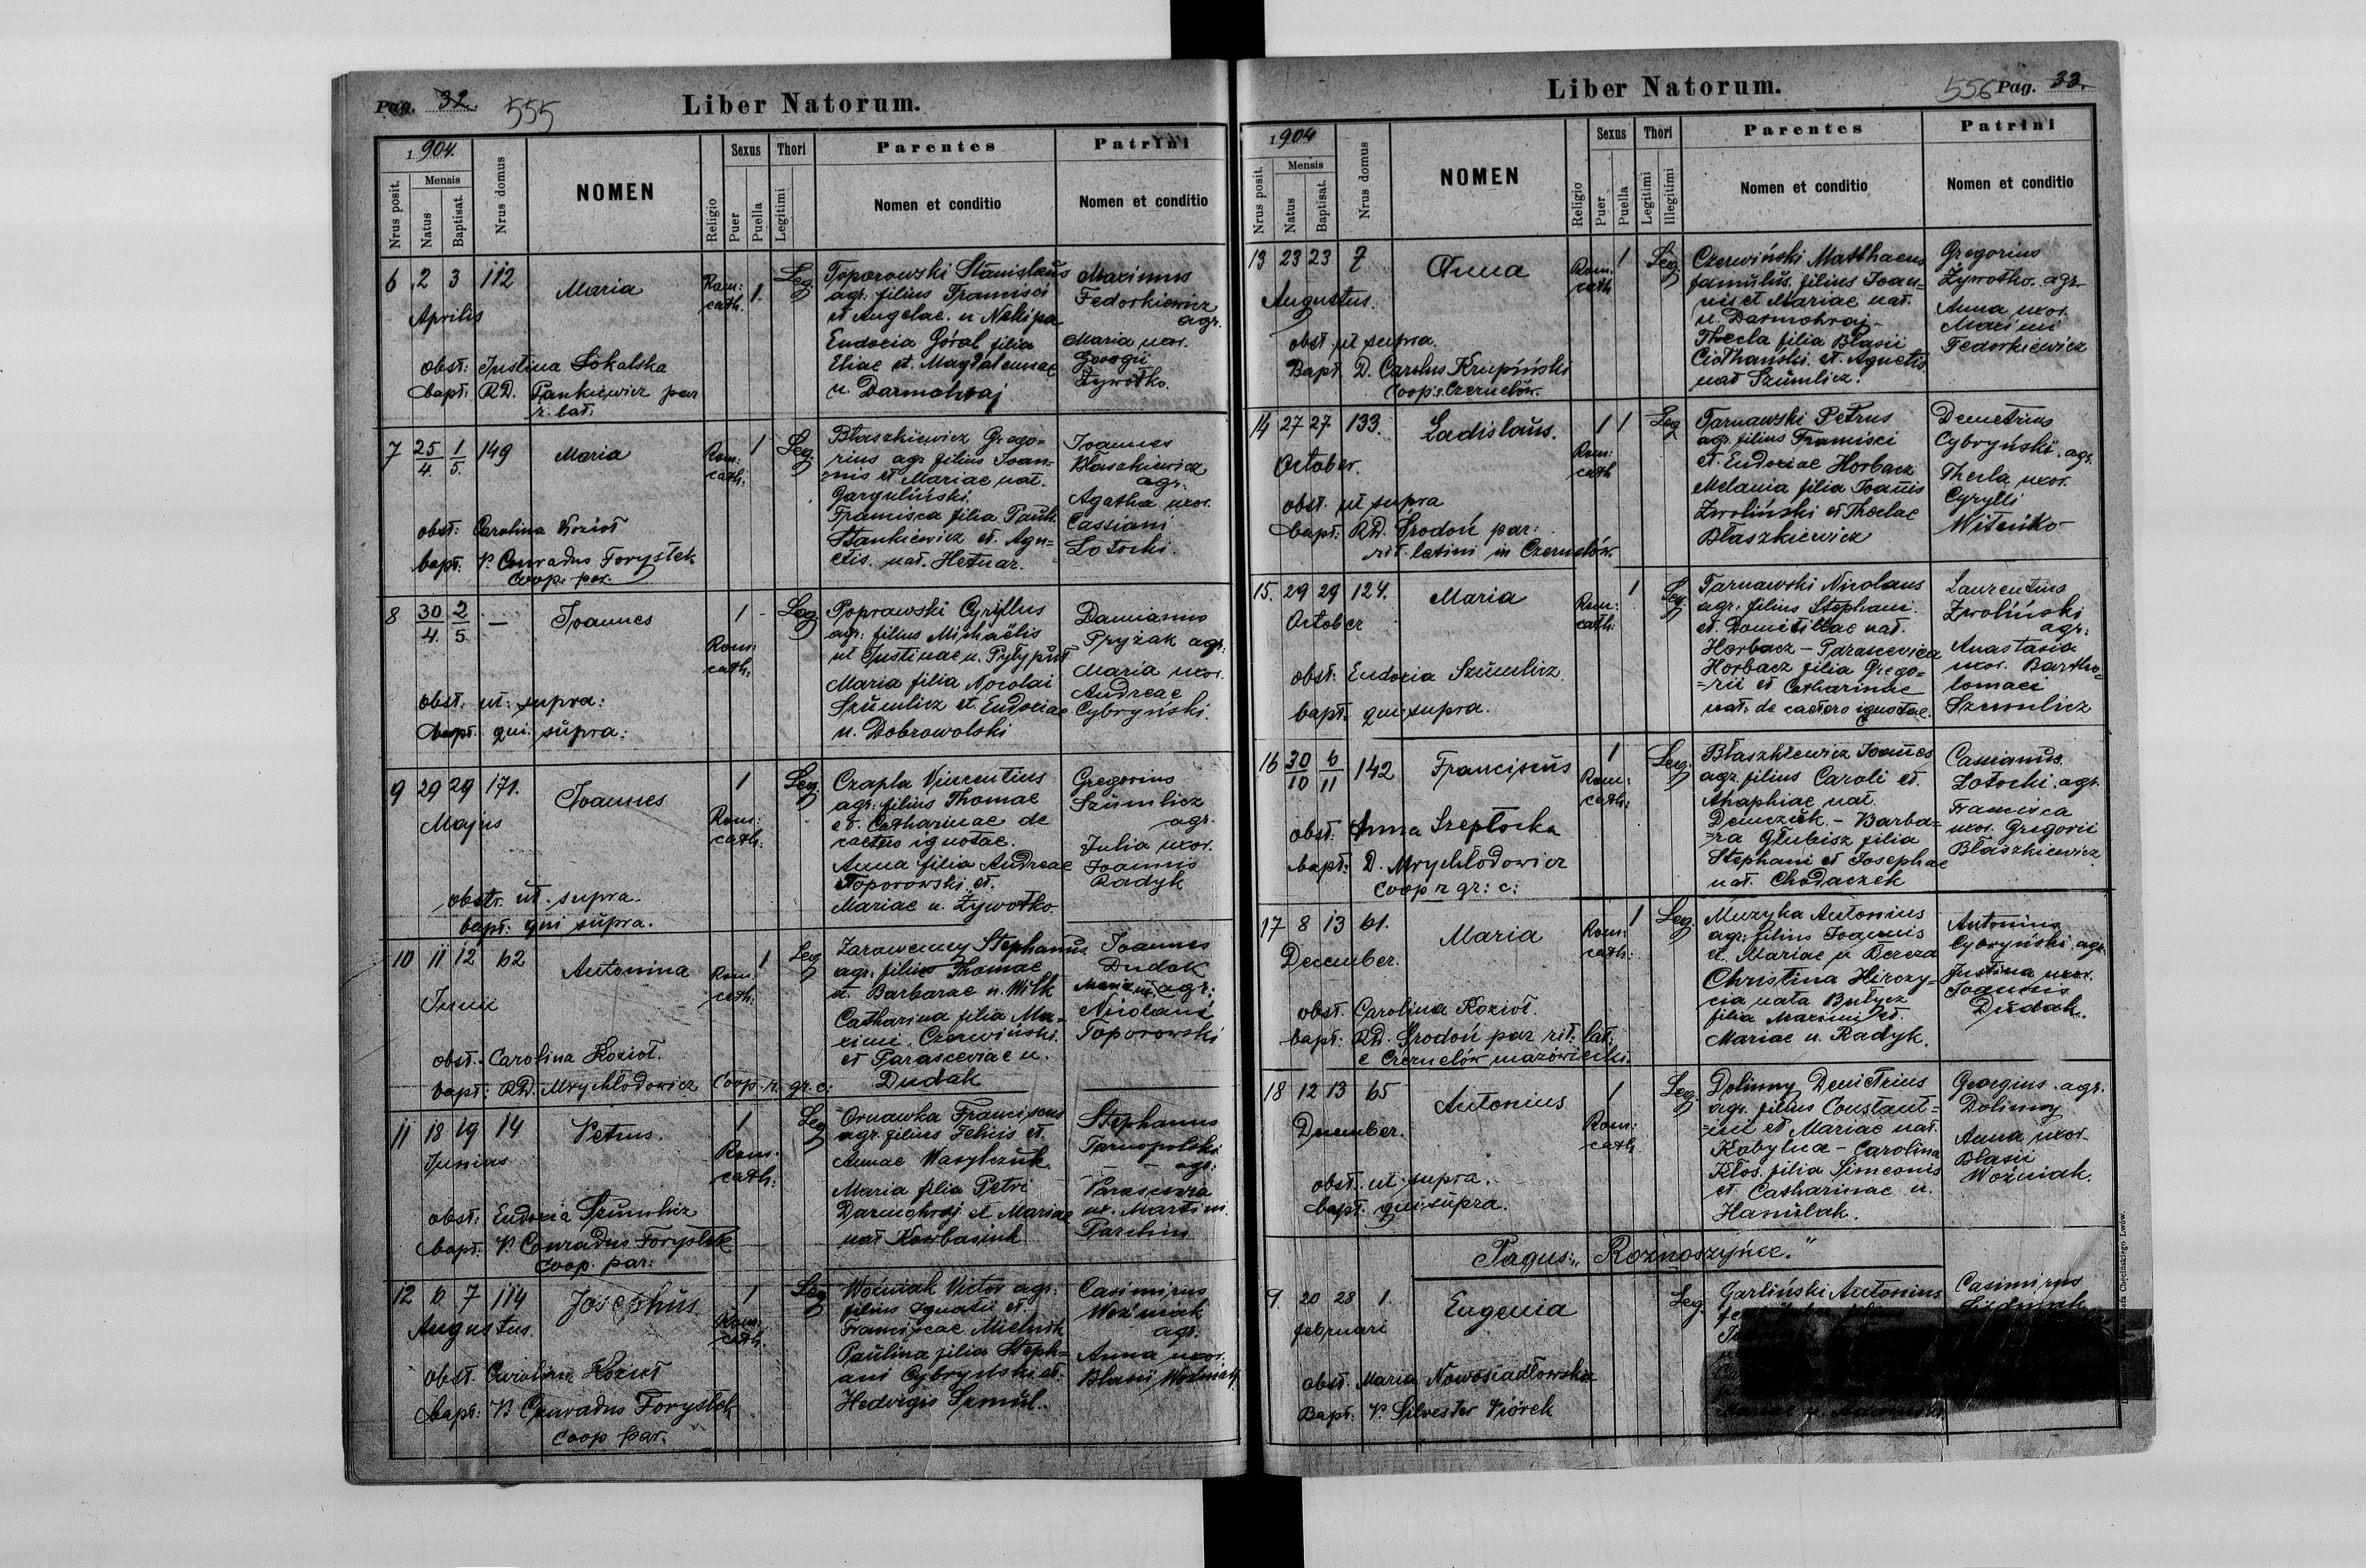 Pag. 32. 555
Liber Natorum.
1904.
Nrus posit.
Mensis
Natus
Baptisat.
Nrus domus
NOMEN
Religio
Sexus
Puer
Puella
Thori
Legitimi
Parentes
Nomen et conditio
Patrini
Nomen et conditio
6 2 3 112 Maria Rom: cath. 1. Leg.
Aprilis
obst: Justina Sokalska
bapt: RD. Pankiewicz par
r. lat.
Toporowski Stanislaus
agr. filius Francisci
et Angelae. n Nakipa
Eudocia Góral filia
Eliae et. Magdalennae
n. Darmohraj
Maximus
Fedorkiewicz
agr.
Maria uxor.
Georgii
Żywotko.
7 25/4. 1/5. 149 Maria Rom: cath: 1 Leg.
obst: Carolina Kozioł
bapt. P. Conradus Forystek
Coop. par.
Błaszkiewicz Grego=
rius agr filius Joan=
nis et Mariae nat.
Garguliński.
Francisca filia Pauli
Stankiewicz et. Agn=
etis. nat. Hetnar.
Joannes
Błaszkiewicz
agr.
Agatha uxor.
Cassiani
Łotocki.
8 30/4 2/5 — Joannes 1 Rom: cath: Leg.
obst: ut supra:
bapt. qui supra:
Poprawski Cyrillus
agr: filius Michaëlis
et Justinae n. Pyłypiw
Maria filia Nocolai
Szumlicz et. Eudociae
n. Dobrowolski
Damianus
Pryżak agr.
Maria uxor.
Andreae
Cybryński.
9 29 29 171. Joannes 1 Rom: cath: Leg.
Majus
obstr. ut. supra.
bapt. qui supra.
Czapla Vincentius
agr: filius Thomae
et. Catharinae de
caetero ignotae.
Anna filia Andreae
Toporowski et.
Mariae n. Żywotko.
Gregorius
Szumlicz
agr.
Julia uxor.
Joannis
Radyk
10 11 12 62 Antonina Rom: cath: 1 Leg
Junii
obst. Carolina Kozioł.
bapt: RD. Mrychłodowicz Coop. r. gr. c:
Stephanus
agr. filius Thomae
et. Barbarae n. Wilk
Catharina filia Ma=
ximi. Czerwiński.
et Parasceviae n.
Dudak
Joannes
Dudak
Maria ux. agr:
Nicolai
Toporowski
11 18 19 14 Petrus. 1 Rom. cath: Leg
Junius
obst: Eudocia Szumlicz
bapt. P. Conradus Forystek
Coop. par.
Ornawka Franciscus
agr. filius Felicis et.
Annae Wasylczuk.
Maria filia Petri
Darmohraj et Mariae
nat Kowbasiuk
Stephanus
Tarnopolski
agr:
Parascevia
ux. Martini.
12 6 7 114 Josephus 1 Rom: cath. Leg
Augustus.
obst. Carolina Kozioł
bapt: P. Conradus Forystek
coop par.
Woźniak Victor agr.
filius Ignatii et
Franciscae Michnik
Paulina filia Steph=
ani Cybryński et.
Hedvigis Szmul.
Casimirus
Woźniak
agr.
Anna uxor.
Blasii Woźniak
Liber Natorum.
556 Pag. 33.
1904
Nrus posit.
Mensis
Natus
Baptisat.
Nrus domus
NOMEN
Religio
Sexus
Puer
Puella
Thori
Legitimi
Illegitimi
Parentes
Nomen et conditio
Patrini
Nomen et conditio
13 23 23 7 Anna Rom. cath 1 Leg.
Augustus.
obst ut supra.
Bapt. D. Carolus Krupiński
Coop. Czernelów.
Czerwiński Matthaeus
famulus, filius Joan=
nis et Mariae nat.
n. Darmohraj-
Thecla filia Blasii
et. Agnetis
nat Szumlicz.
Gregorius
Żywotko. agr.
Anna uxor.
Maximi
Fedorkiewicz
14 27 27 133. Ladislaus. 1 1 Rom: cath Leg
October.
obst. ut supra
bapt: RD. Środoń par:
rit. latini in Czernelów
Tarnawski Petrus
agr. filius Francisci
et. Eudociae Horbacz
Melania filia Joannis
Zwoliński et Theclae
Błaszkiewicz
Demetrius
Cybryński. agr.
Thecla uxor.
Cyrylli
Witeńko
15. 29 29 124. Maria Rom: cath: 1 Leg.
October
obst: Eudocia Szumlicz.
bapt. qui supra.
Tarnawski Nicolaus
agr. filius Stephani.
et. Domicillae nat.
Horbacz - Parascevia
Horbacz filia Grego=
=rii et Catharinae
nat. de caetero ignotae.
Laurentius
Zwoliński
agr:
Anastasia
uxor. Bartho=
lomaei
Szumlicz
16 30/10 6/11 142 Franciscus 1 Rom: cath: Leg.
obst. Anna Szeptocka
bapt: D. Mrychłodowicz
Coop r gr: c:
Błaszkiewicz Joannes
agr. filius Caroli et.
Ahaphiae nat.
Demczuk. - Barba=
=ra Głubisz filia
Stephani et Josephae
nat. Chodaczek
Cassianus.
Łotocki. agr.
Francisca
uxor. Gregorii
Błaszkiewicz
17 8 13 61. Maria Rom: cath: 1 Leg
December.
obst. Carolina Kozioł.
bapt: RD. Środoń par rit: lat:
e Czernelów mazówiecki.
Muzyka Antonius
agr: filius Joannis
et. Mariae n Bereza
Christina Hirczy=
cia nata Butycz
filia Maximi et.
Mariae n. Radyk.
Antonius
Cybryński. agr.
Justina uxor.
Joannis
Dudak.
18 12 13 65 Antonius 1 Rom: cath Leg.
December.
obst. ut supra.
bapt. qui supra.
Dolinny Demetrius
agr. filius Constant=
=ini et Mariae nat.
Kobylna - Carolina
Kłos. filia Simeonis
et Catharinae n.
Haniślak.
Georgius. agr.
Dolinny
Anna uxor.
Blasii
Woźniak.
Pagus: „Roznoszyńce."
9. 20 28 1. Eugenia Leg.
februarii
obst. Maria Nowosiadłowska
Bapt. P. Silvester Piórek
Garliński Antonius
Mariae n.
Casimirus